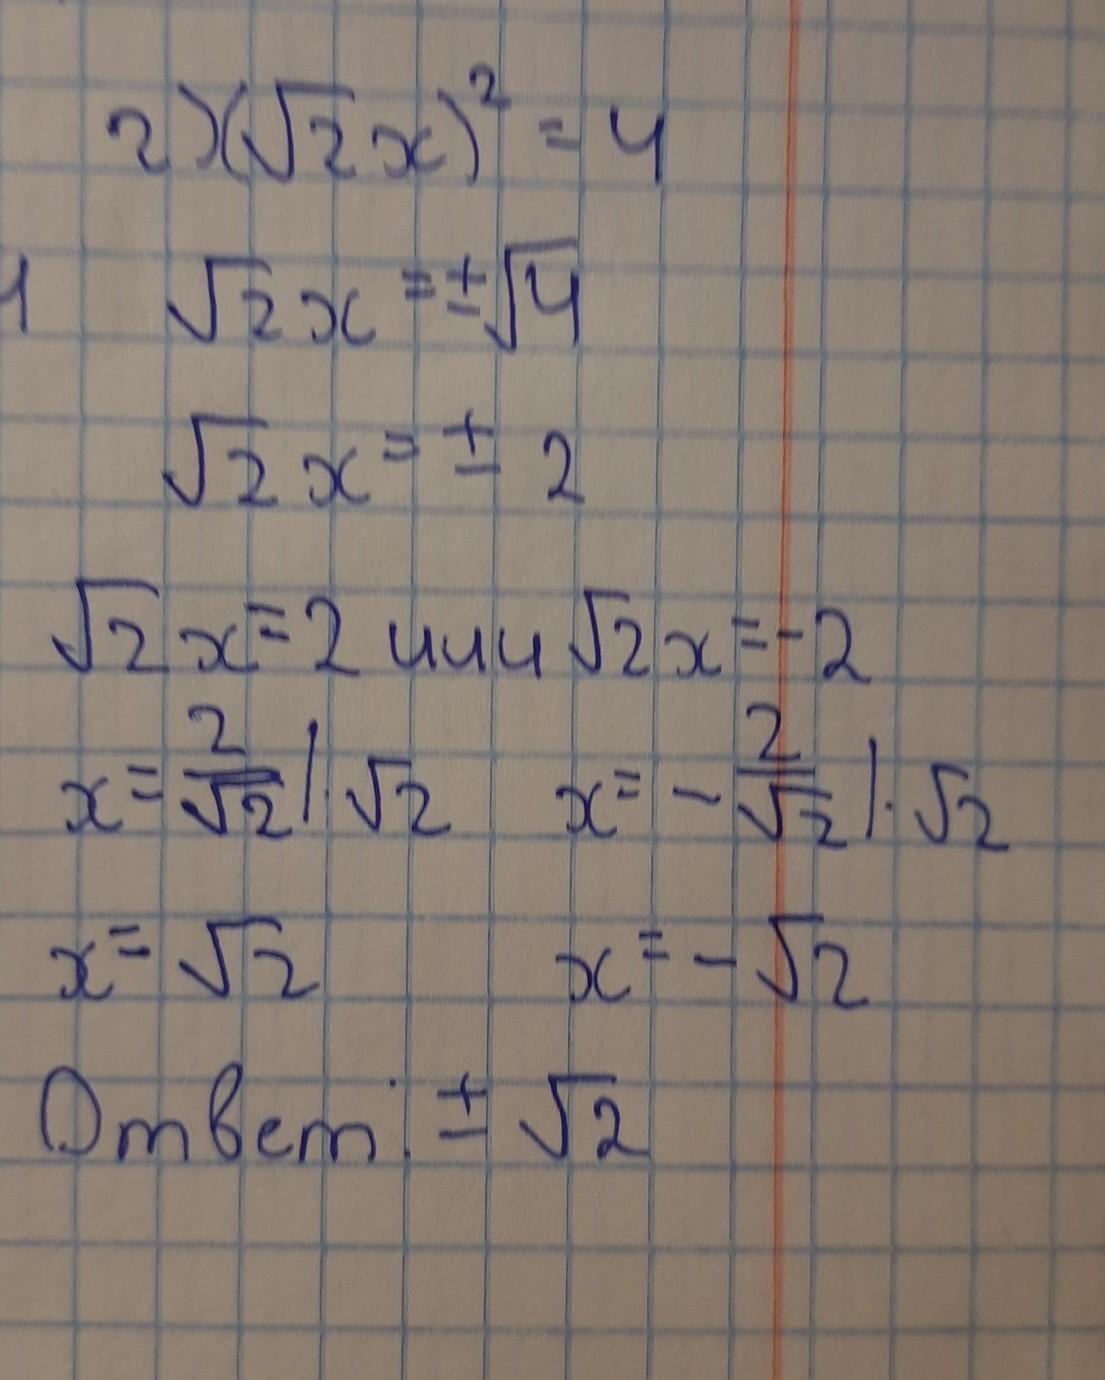 2) (√2x)² = 4
√2x = ±√4
√2x = ± 2
√2x = 2 или √2x = -2
x = 2/√2 | · √2 x = - 2/√2 | · √2
x = √2 x = - √2
Ответ: ± √2